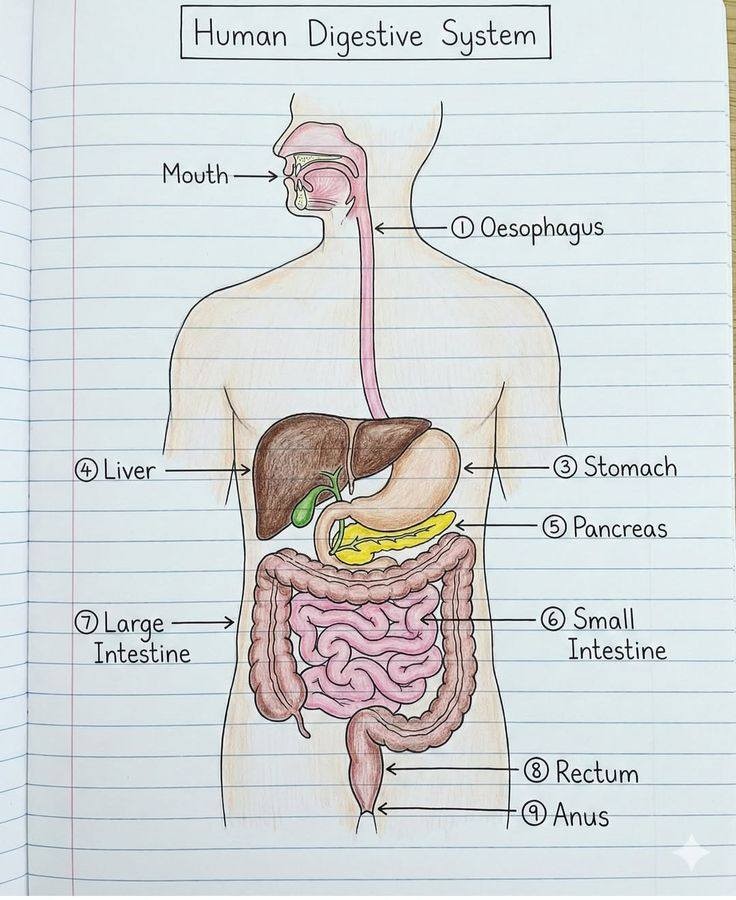 Human Digestive System
Mouth
① Oesophagus
④ Liver
③ Stomach
⑤ Pancreas
⑦ Large
Intestine
⑥ Small
Intestine
⑧ Rectum
⑨ Anus